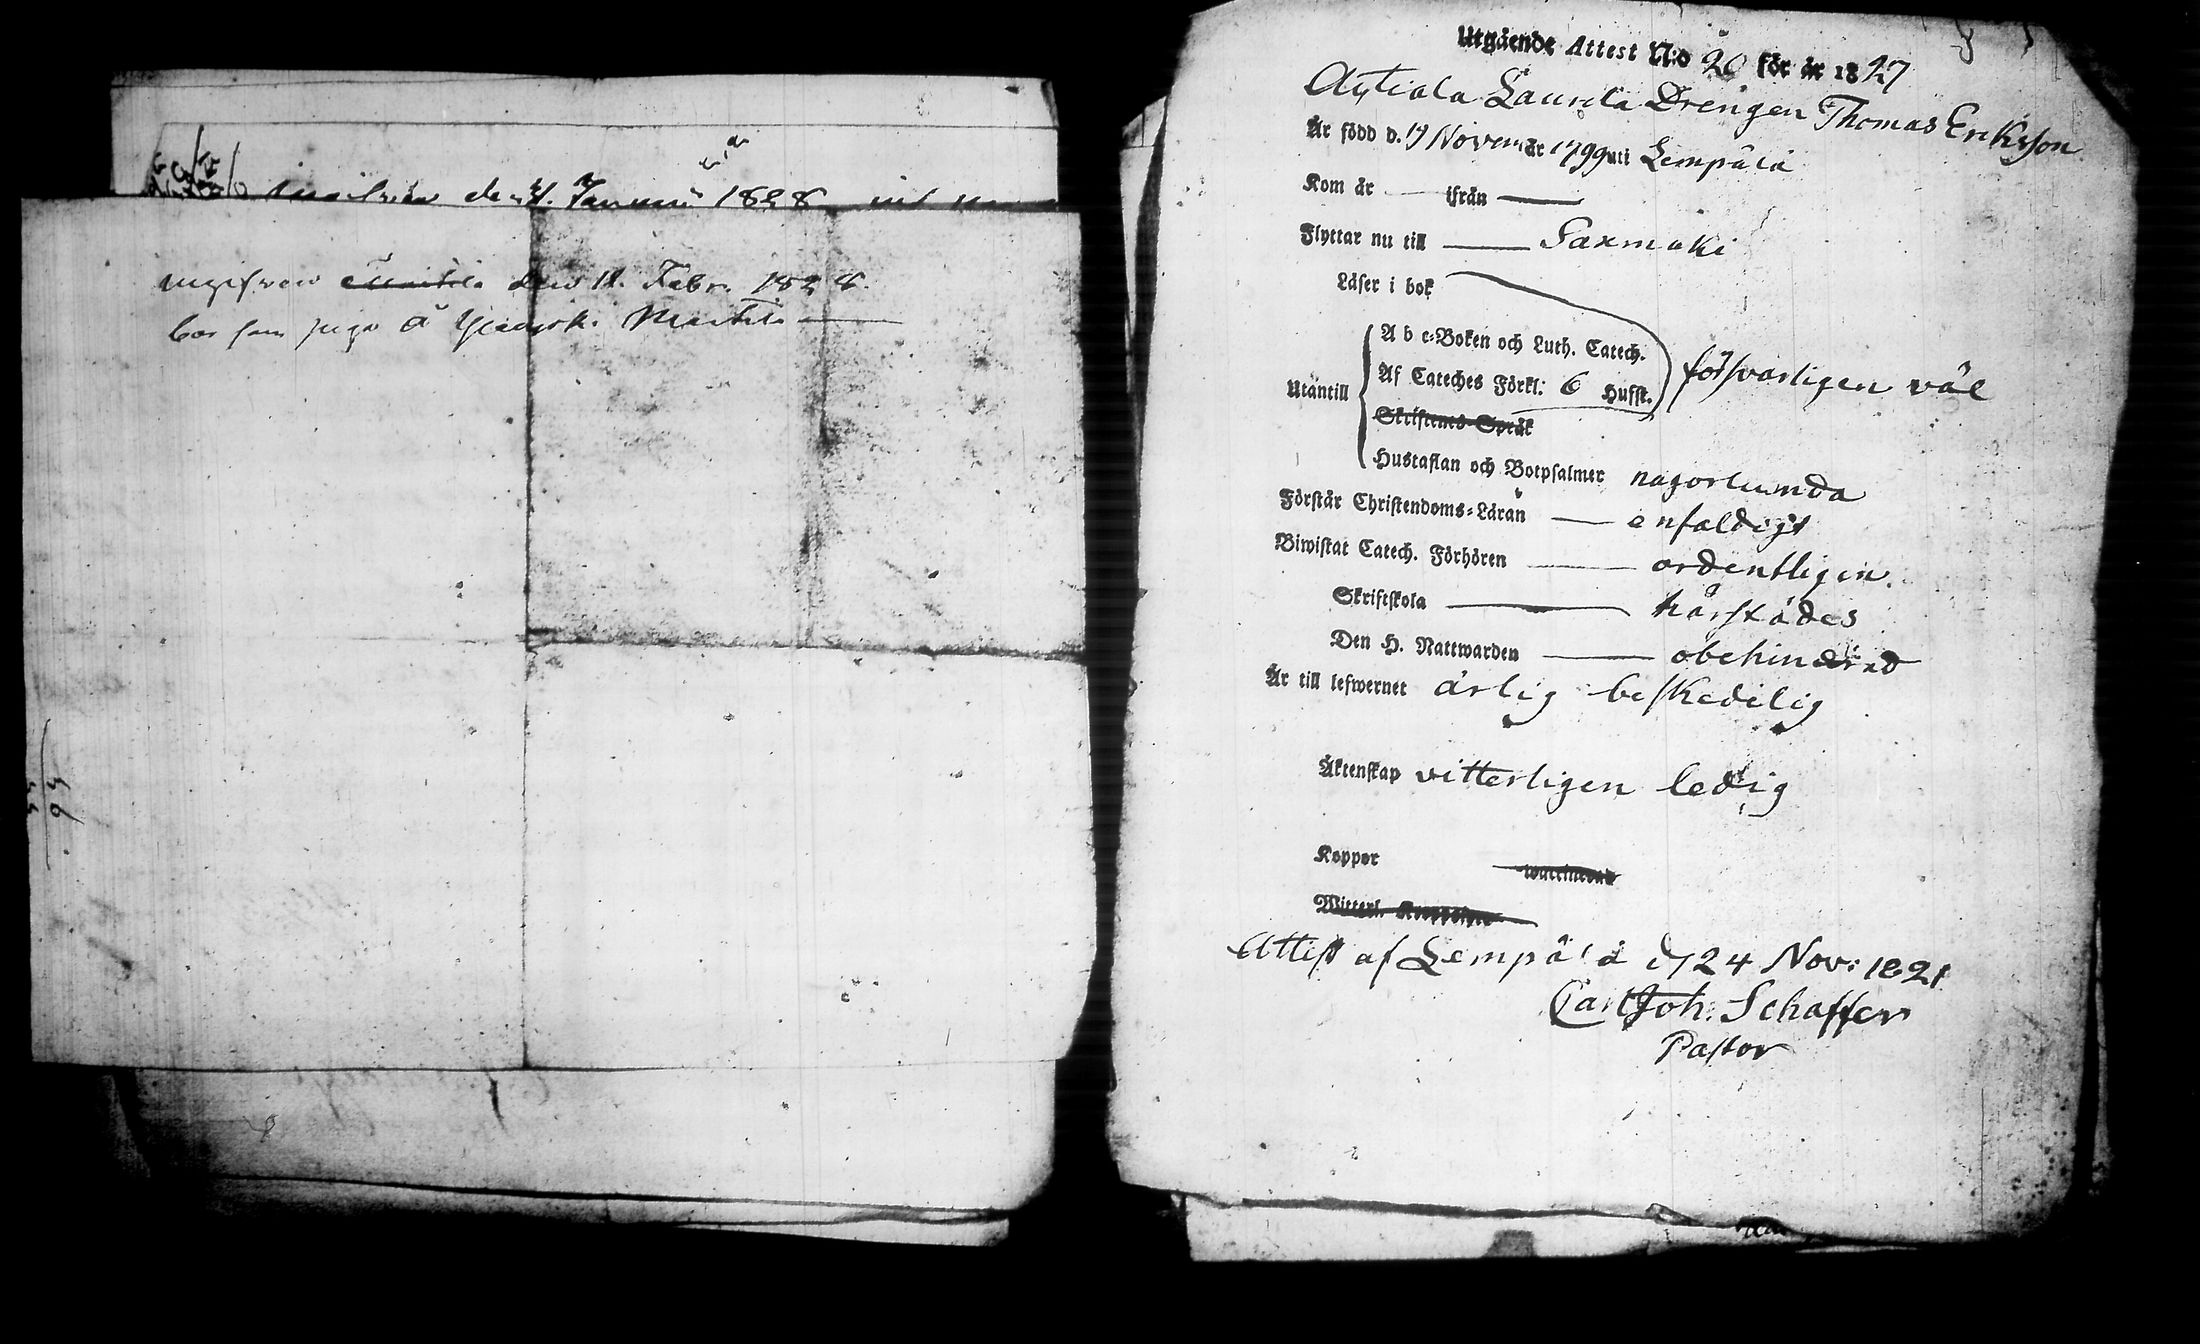 den 31. Januarii 1828
den 11. Febr. 1828.
bor som piga å Martila
Utgående Attest N:o 20 för år 1827
Laurila Drengen Thomas Eriksson
Är född d. 17 Novem år 1799 uti Lempälä
Kom år — ifrån —
Flyttar nu till — Saxmäki
Läser i bok
A b c-Boken och Luth. Catech.
Utantill Af Cateches Förkl: 6 Hufst. försvarligen väl
Skriftenes Språk
Hustaflan och Botpsalmer någorlunda
Förstår Christendoms-Läran — enfaldigt
Biwistat Catech. Förhören — ordentligen.
Skriftskola — härstädes
Den H. Nattwarden — obehindrad
Är till lefwernet ärlig beskedelig
Äktenskap vitterligen ledig
Koppor
Witterl.
Attest af Lempälä d 24 Nov: 1827
Carl Joh. Schaffer
Pastor